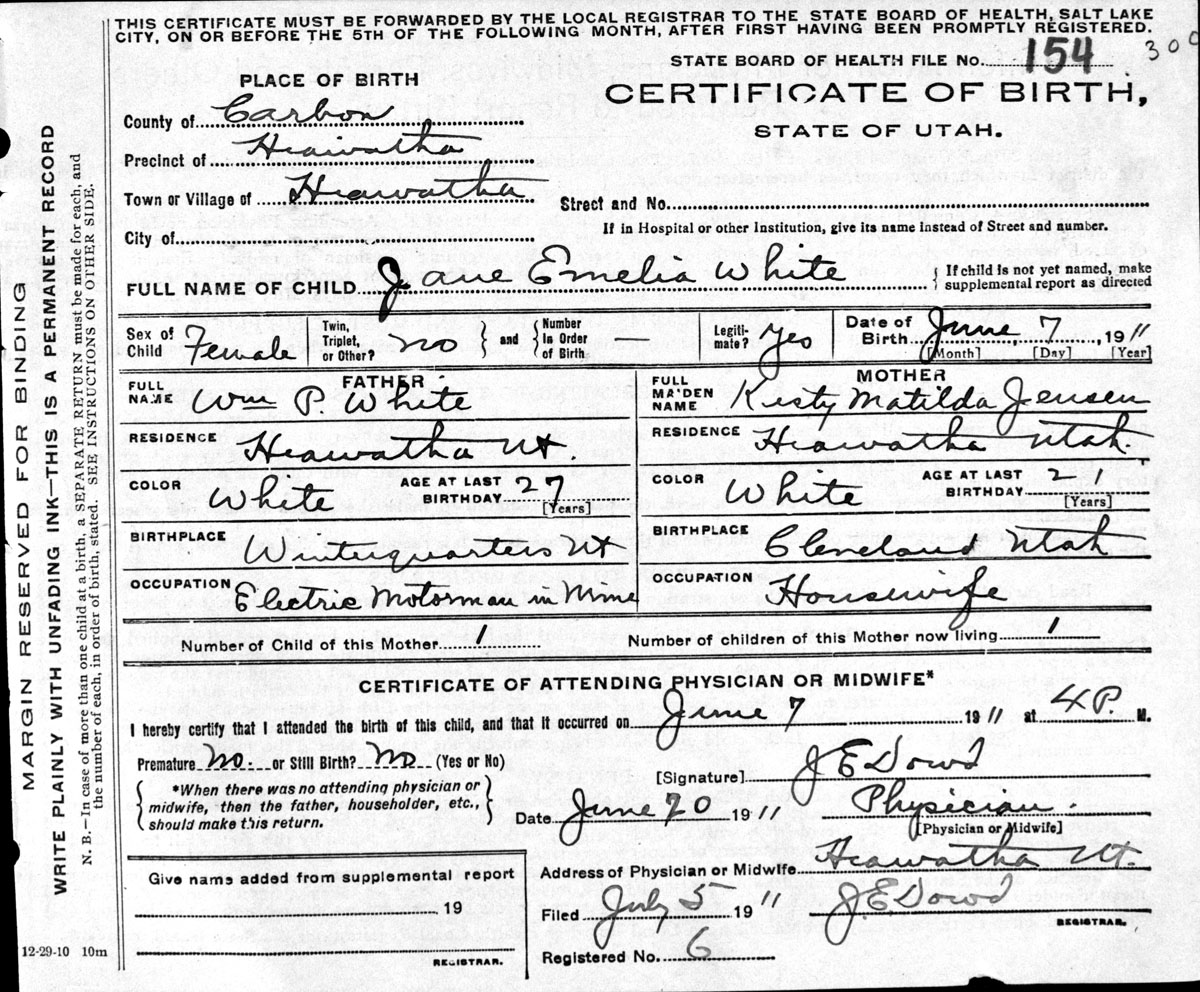 THIS CERTIFICATE MUST BE FORWARDED BY THE LOCAL REGISTRAR TO THE STATE BOARD OF HEALTH, SALT LAKE
CITY, ON OR BEFORE THE 5TH OF THE FOLLOWING MONTH, AFTER FIRST HAVING BEEN PROMPTLY REGISTERED.
STATE BOARD OF HEALTH FILE No. 154
300
PLACE OF BIRTH
CERTIFICATE OF BIRTH,
STATE OF UTAH.
County of Carbon
Precinct of Hiawatha
Town or Village of Hiawatha
Street and No.
City of
If in Hospital or other Institution, give its name instead of Street and number.
FULL NAME OF CHILD Jane Emelia White { If child is not yet named, make
supplemental report as directed
Sex of Child Female
Twin, Triplet, or Other? No } and { Number in Order of Birth
Legiti-mate? Yes
Date of Birth June, 7, 1911
[Month] [Day] [Year]
FATHER
FULL NAME Wm P. White
RESIDENCE Hiawatha Ut
COLOR White AGE AT LAST BIRTHDAY 27 [Years]
BIRTHPLACE Winterquarters Ut
OCCUPATION Electric Motorman in Mine
MOTHER
FULL MAIDEN NAME Kisty Matilda Jensen
RESIDENCE Hiawatha Utah.
COLOR White AGE AT LAST BIRTHDAY 21 [Years]
BIRTHPLACE Cleveland Utah
OCCUPATION Housewife
Number of Child of this Mother 1 Number of children of this Mother now living 1
CERTIFICATE OF ATTENDING PHYSICIAN OR MIDWIFE*
I hereby certify that I attended the birth of this child, and that it occurred on June 7 1911 at 4 P. M.
Premature No. or Still Birth? No (Yes or No)
{ *When there was no attending physician or
midwife, then the father, householder, etc.,
should make this return. }
[Signature] J E Dowd
Date June 20 1911 Physician.
[Physician or Midwife]
Address of Physician or Midwife Hiawatha Ut.
Filed July 5 1911 J. E. Dowd
REGISTRAR.
Registered No. 6
Give name added from supplemental report
19
REGISTRAR.
12-29-10 10m
MARGIN RESERVED FOR BINDING
WRITE PLAINLY WITH UNFADING INK—THIS IS A PERMANENT RECORD
N. B.—In case of more than one child at a birth, a SEPARATE RETURN must be made for each, and
the number of each, in order of birth, stated. SEE INSTRUCTIONS ON OTHER SIDE.